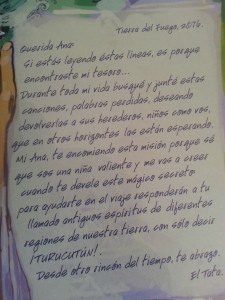 Tierra del Fuego, 2016.
Querida Ana:
Si estás leyendo estas líneas, es porque
encontraste mi tesoro...
Durante toda mi vida busqué y junté estas
canciones, palabras perdidas, deseando
devolverlas a sus herederos, niños como vos,
que en otros horizontes las están esperando.
Mi Ana, te encomiendo esta misión porque sé
que sos una niña valiente y me vas a creer
cuando te devele este mágico secreto:
para ayudarte en el viaje responderán a tu
llamado antiguos espíritus de diferentes
regiones de nuestra tierra, con sólo decir
¡TURUCUTÚN!.
Desde otro rincón del tiempo, te abrazo.
El Tata.